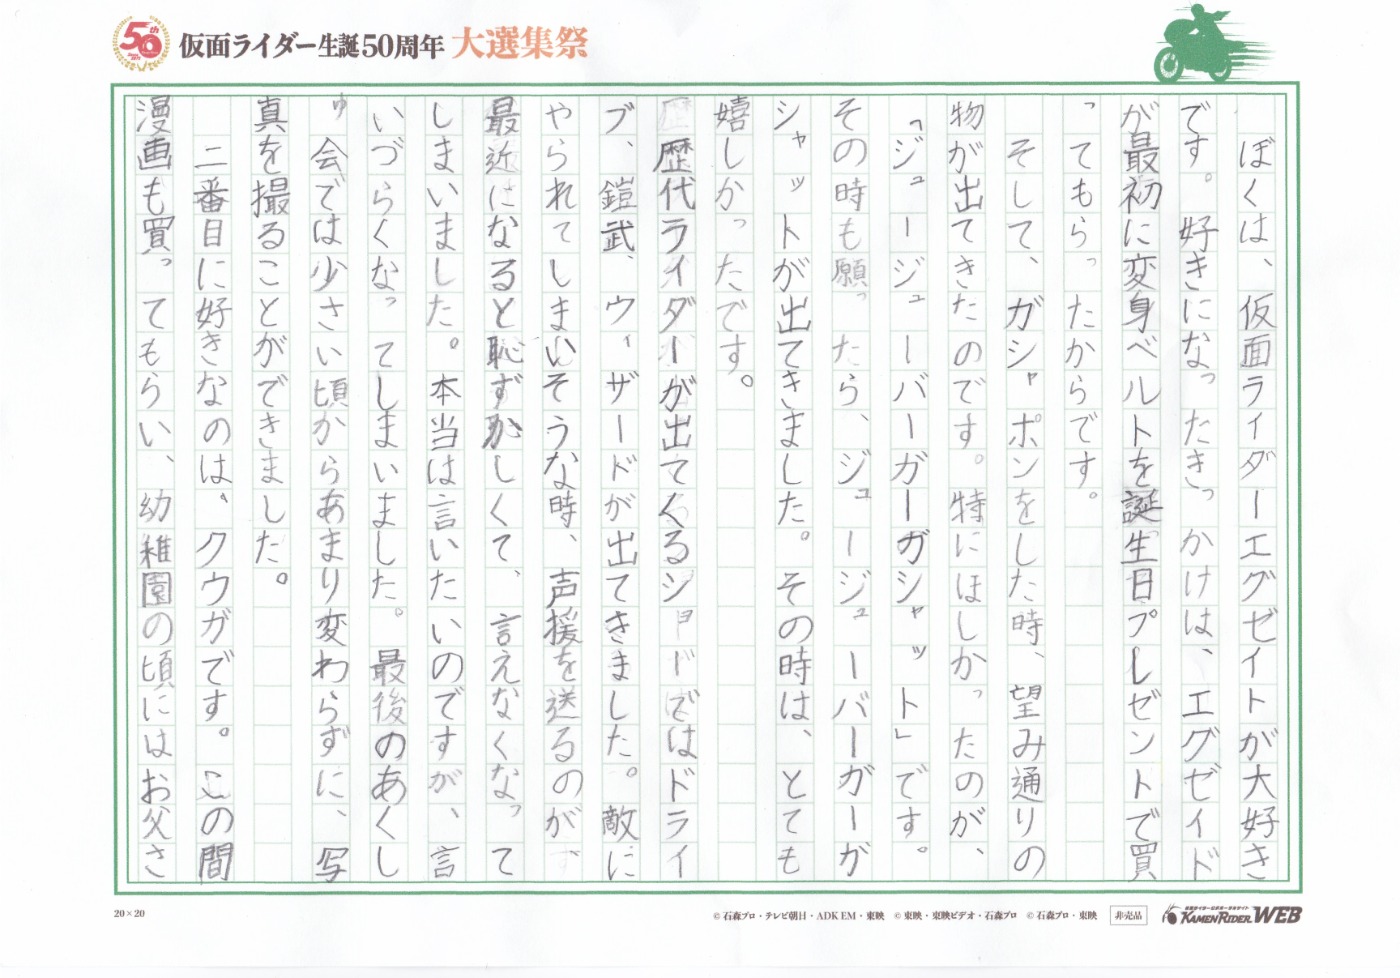 50th
仮面ライダー生誕50周年 大選集祭
ぼくは、仮面ライダーエグゼイトが大好き
です。好きになったきっかけは、エグゼイド
が最初に変身ベルトを誕生日プレゼントで買
ってもらったからです。
そして、ガシャポンをした時、望み通りの
物が出てきたのです。特にほしかったのが、
「ジュージューバーガーガシャット」です。
その時も願ったら、ジュージューバーガーガ
シャットが出てきました。その時は、とても
嬉しかったです。
歴代ライダーが出てくるショードではドライ
ブ、鎧武、ウィザードが出てきました。敵に
やられてしまいそうな時、声援を送るのが
最近になると恥ずかしくて、言えなくなって
しまいました。本当は言いたいのですが、言
いづらくなってしまいました。最後のあくし
ゅ会では少さい頃からあまり変わらずに、写
真を撮ることができました。
二番目に好きなのは、クウガです。この間
漫画も買ってもらい、幼稚園の頃にはお父さ
20×20
©石森プロ・テレビ朝日・ADK EM・東映 ©東映・東映ビデオ・石森プロ ©石森プロ・東映
非売品
KAMEN RIDER WEB